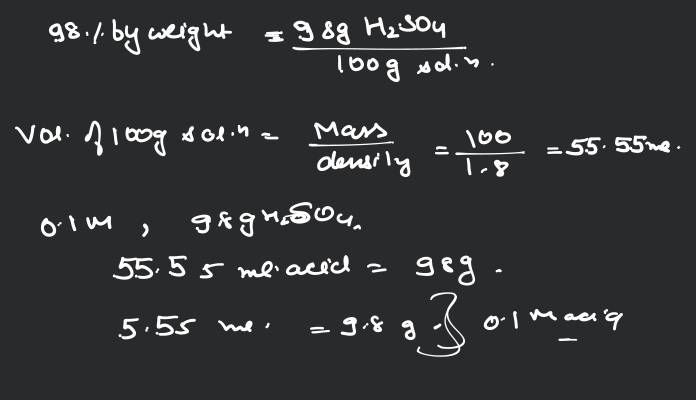 98% by weight = 98g H2SO4 / 100g sol.n.
Vol. of 100g sol.n = Mass / density = 100 / 1.8 = 55.55 ml.
0.1 M, 98g H2SO4.
55.55 ml. acid = 98g.
5.55 ml. = 9.8 g } 0.1 M